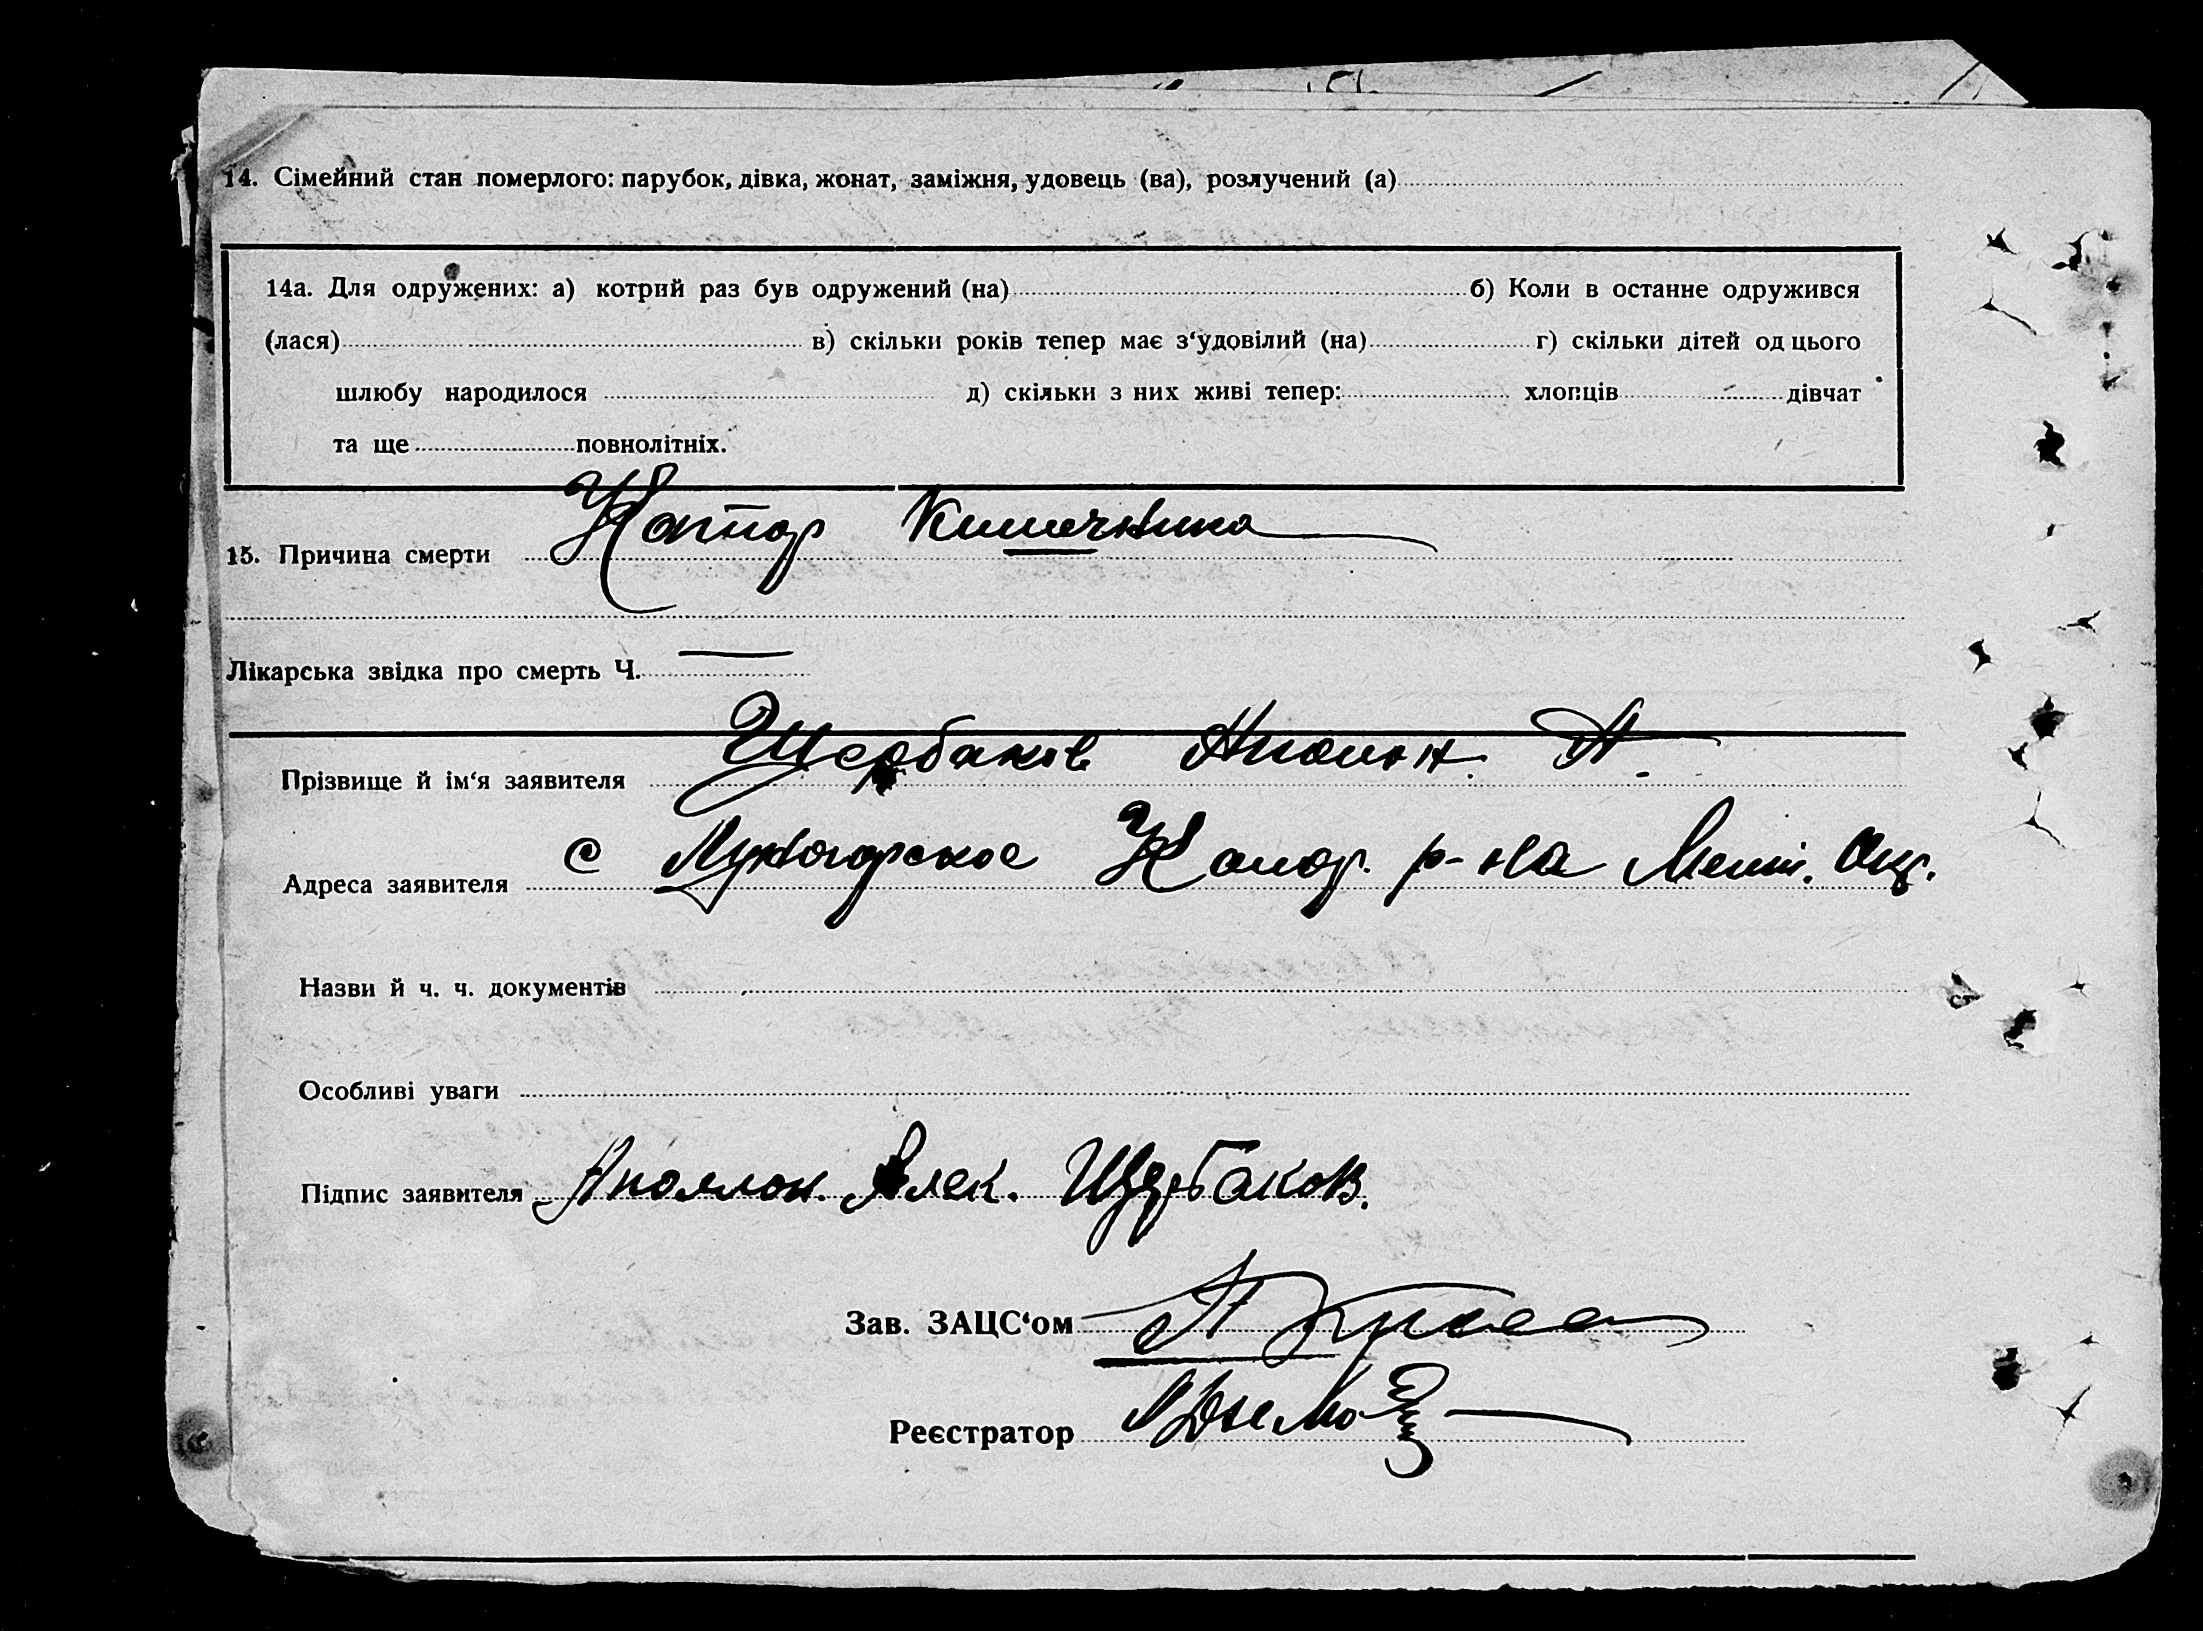 14. Сімейний стан померлого: парубок, дівка, жонат, заміжня, удовець (ва), розлучений (а)
14а. Для одружених: а) котрий раз був одружений (на) б) Коли в останне одружився
(лася) в) скільки років тепер має з‘удовілий (на) г) скільки дітей од цього
шлюбу народилося д) скільки з них живі тепер: хлопців дівчат
та ще повнолітніх.
15. Причина смерти Катар Кишечника
Лікарська звідка про смерть Ч. —
Прізвище й ім‘я заявителя Щербаков Аполон А.
Адреса заявителя с р-на Окр.
Назви й ч. ч. документів
Особливі уваги
Підпис заявителя Аполлон. Алек. Щербаков.
Зав. ЗАЦС‘ом
Реєстратор